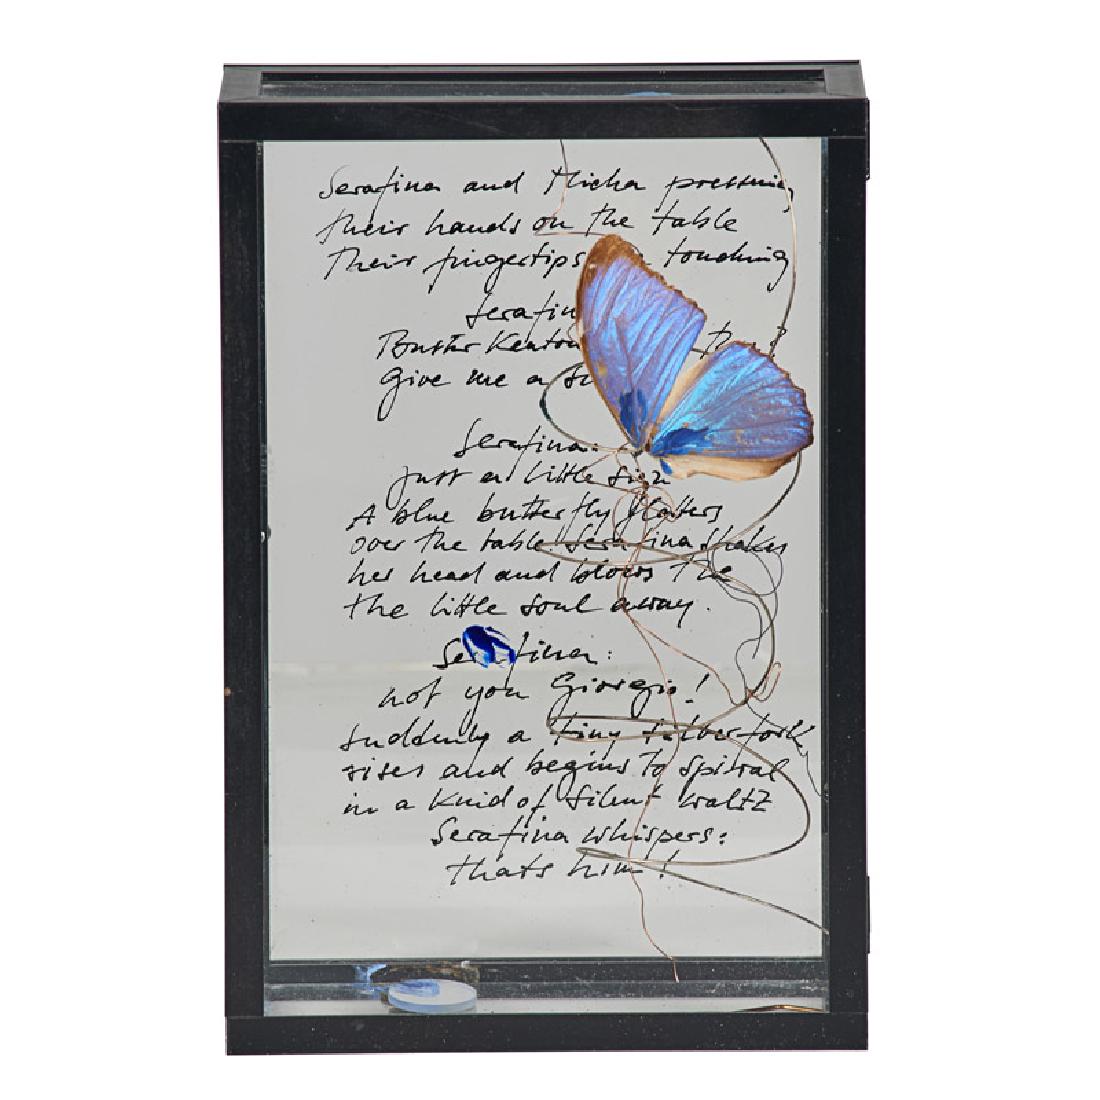 Serafina and Micha pressing
their hands on the table
Their fingertips touching
Serafin
Buster Keaton
give me a
Serafina:
just a little sign
A blue butterfly flatters
over the table. Serafina shakes
her head and blows the
the little soul away.
Serafina:
not you Giorgio!
suddenly a tiny silber fork
rises and begins to spiral
in a Knid of silent waltz
Serafina whispers:
thats him!